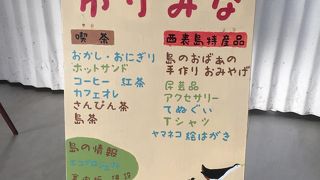 みな
喫茶
おかし・おにぎり
ホットサンド
コーヒー 紅茶
カフェオレ
さんぴん茶
島茶
西表島特産品
島のおばぁの
手作り おみやげ
民芸品
アクセサリー
てぬぐい
Tシャツ
ヤマネコ 絵はがき
島の情報
エコプロジェクト